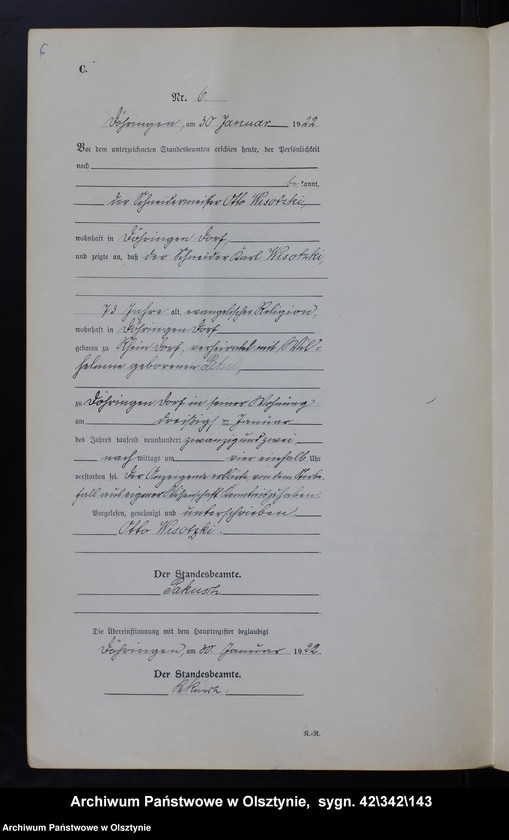 6
C.
Nr. 6.
Döhringen, am 30. Januar 1922.
Vor dem unterzeichneten Standesbeamten erschien heute, der Persönlichkeit
nach
bekannt,
der Schneidermeister Otto Wisotzki,
wohnhaft in Döhringen Dorf,
und zeigte an, daß der Schneider Karl Wisotzki,
73 Jahre alt, evangelischer Religion,
wohnhaft in Döhringen Dorf
geboren zu Dorf, verheiratet mit Wil=
helmine geborenen
zu Döhringen Dorf in seiner Wohnung
am dreißigsten Januar
des Jahres tausend neunhundert zwanzig und zwei
nachmittags um vier einhalb Uhr
verstorben sei. Der Anzeigende erklärte, von dem Sterbe-
fall aus eigener Wissenschaft Kenntnis zu haben.
Vorgelesen, genehmigt und unterschrieben
Otto Wisotzki.
Der Standesbeamte.
Die Übereinstimmung mit dem Hauptregister beglaubigt
Döhringen, am 30. Januar 1922.
Der Standesbeamte.
R.-R.
Archiwum Państwowe w Olsztynie, sygn. 42\342\143
Archiwum Państwowe w Olsztynie